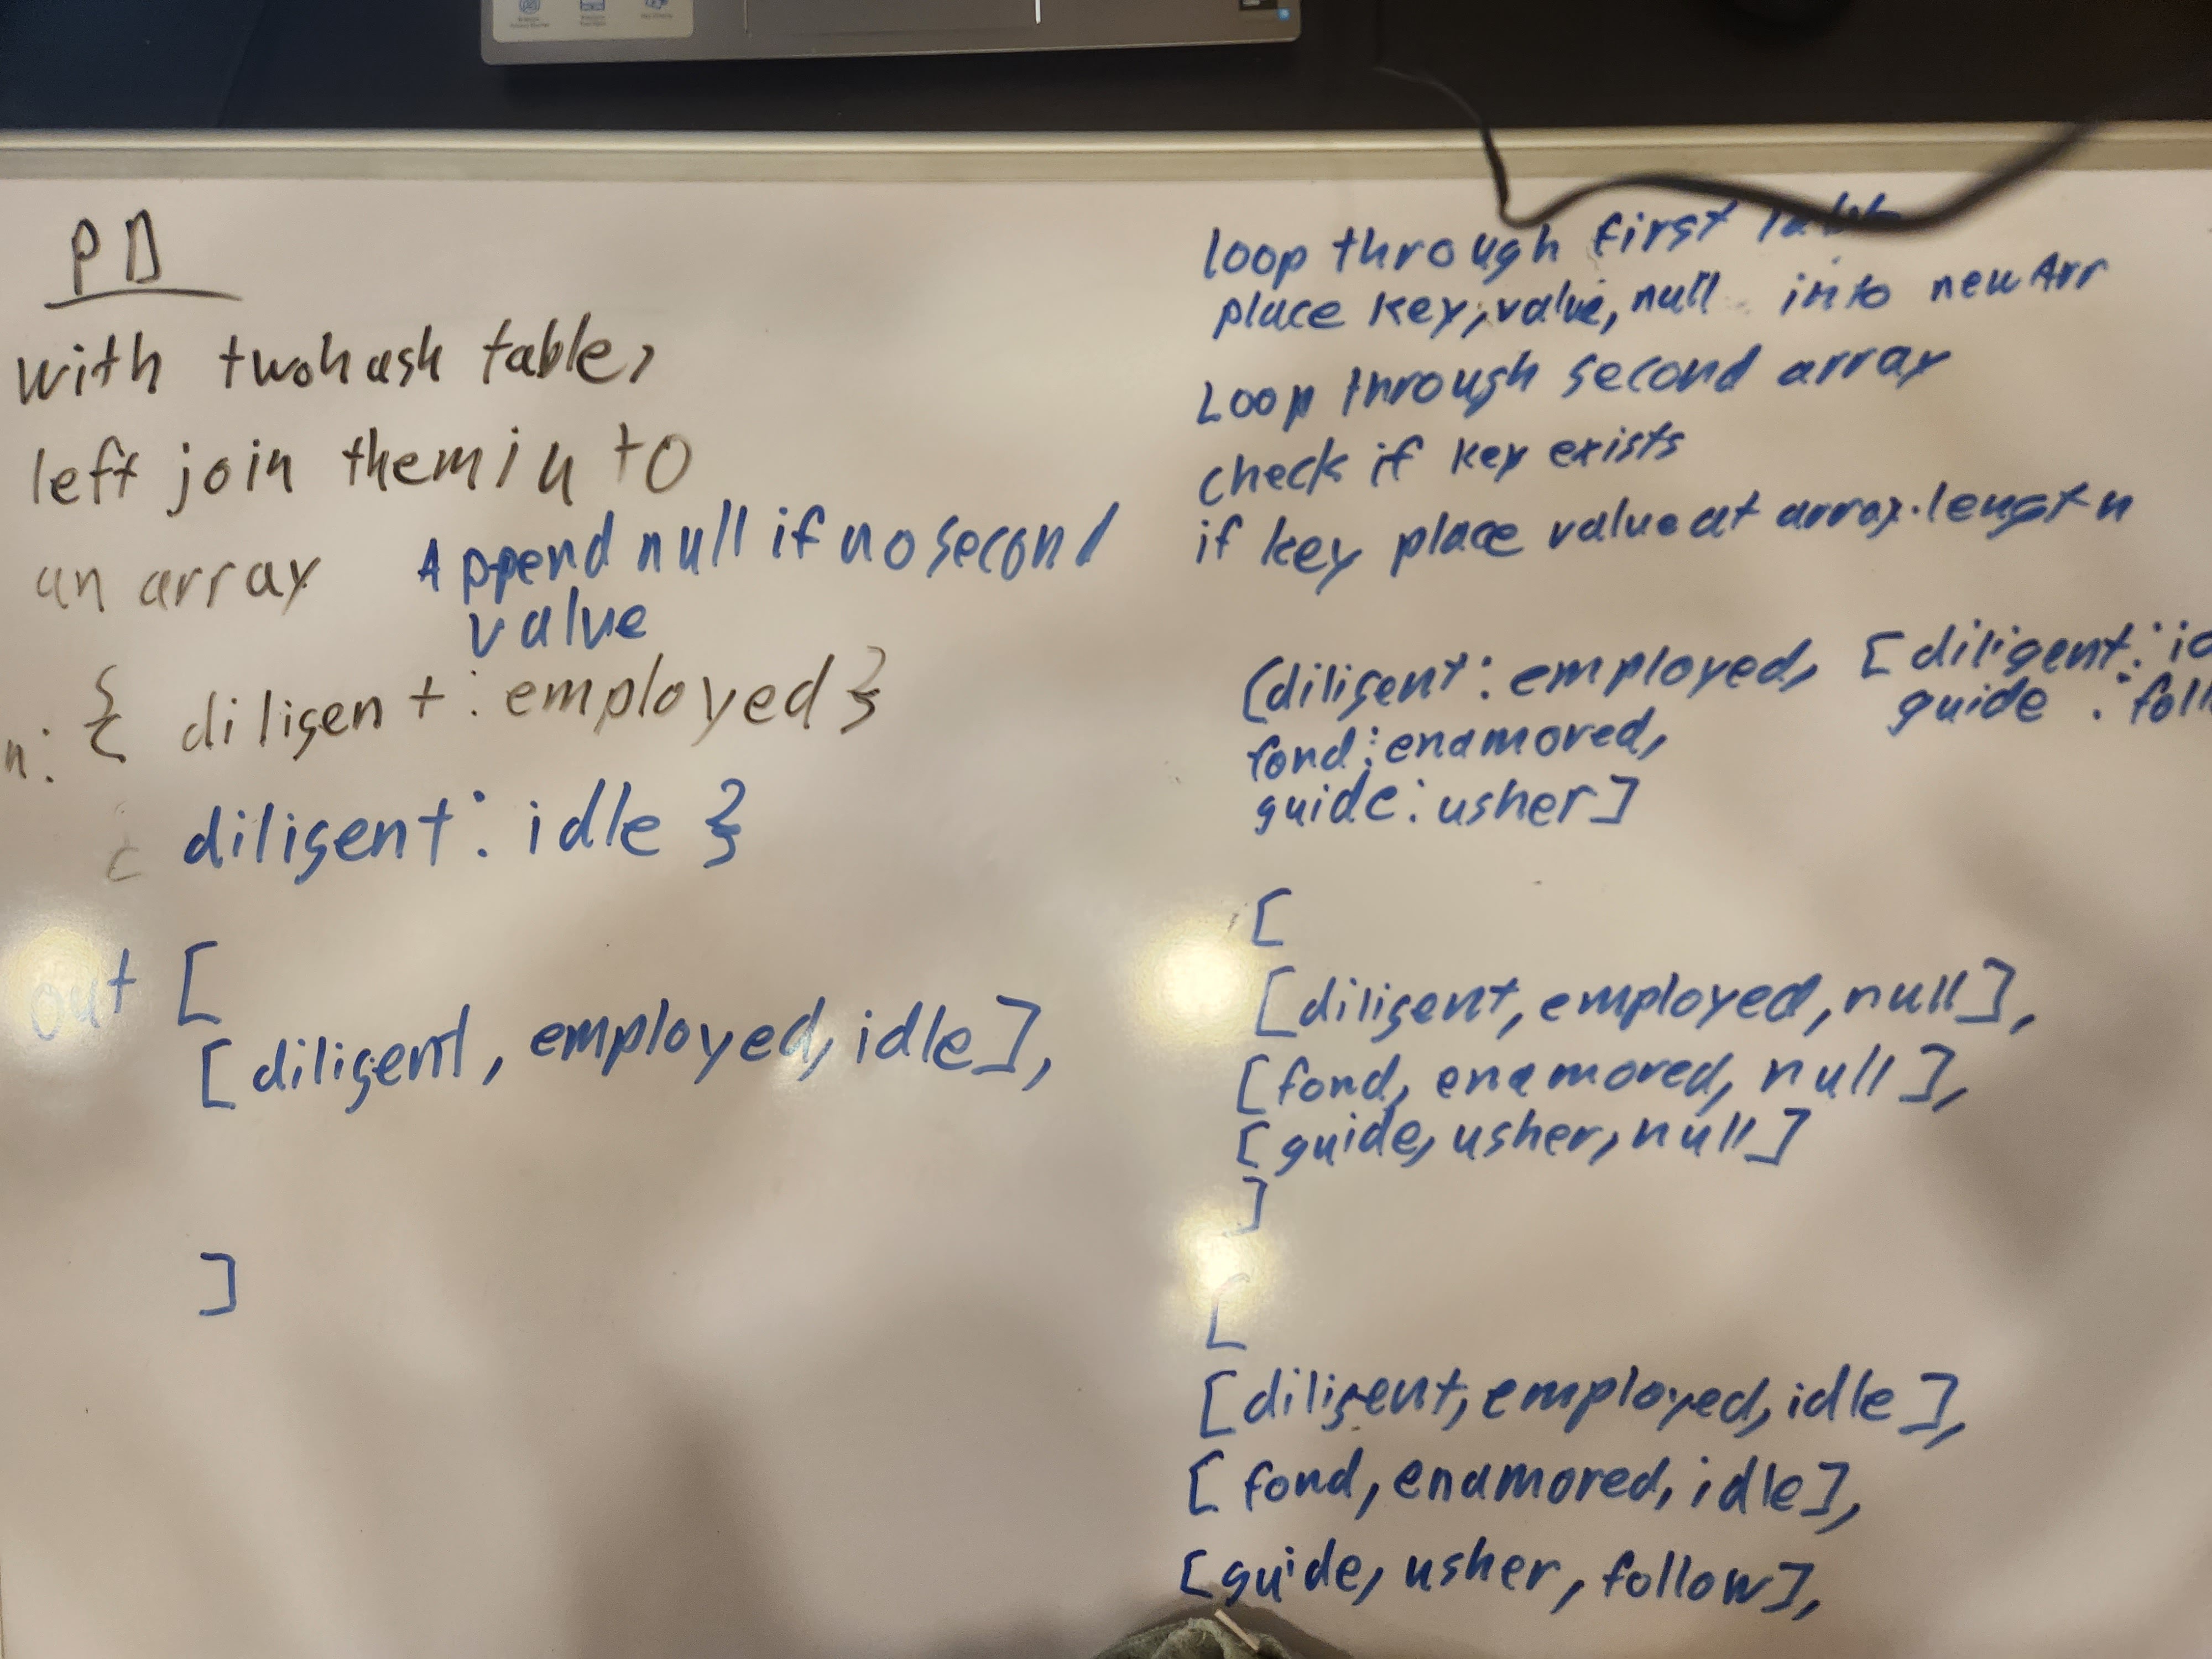 PD
with two hash table,
left join them into
an array
Append null if no second
value
n: { diligent : employed }
diligent : idle }
out [
[diligent, employed, idle],
]
loop through first
place key, value, null into newArr
Loop through second array
check if key exists
if key place value at array.length
[diligent : employed,
fond : enamored,
guide : usher]
[diligent : id
guide : foll
[
[diligent, employed, null],
[fond, enamored, null],
[guide, usher, null]
]
[
[diligent, employed, idle],
[fond, enamored, idle],
[guide, usher, follow],